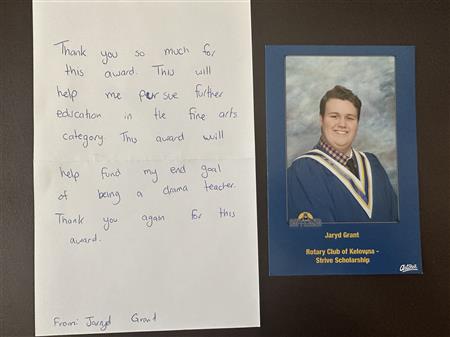 Thank you so much for
this award. This will
help me pursue further
education in the fine arts
category. This award will
help fund my end goal
of being a drama teacher.
Thank you again for this
award.
From: Jaryd Grant
Jaryd Grant
Rotary Club of Kelowna -
Strive Scholarship